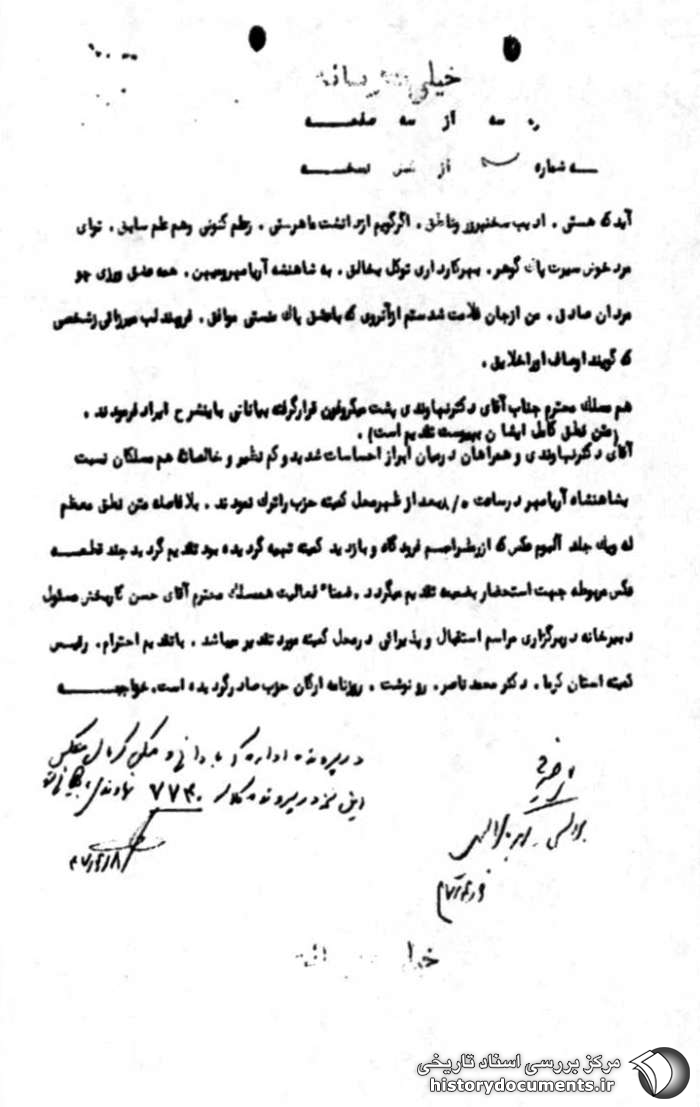 خیلی محرمانه
سه از سه صفحه
شماره از شش نسخه
آید که هستی . ادیب سخنپرور وناطق . اگرگویم ازدانشت ماهرستی . زعلم کنونی وهم علم سابق . توای
مرد خوش سیرت پاک گوهر . بهرکارداری توکل بخالق . به شاهنشه آریامهرومیهن . همه عشق ورزی چو
مردان صادق . من ازجان غلامت شدستم ازآنروی که باعشق پاک هستی موافق . فروبند لب میرزائی زشخصی
که گویند اوصاف اوراخلایق .
هم مسلک محترم جناب آقای دکترنهاوندی پشت میکروفون قرارگرفته بیاناتی باینشرح ایراد فرمودند .
(متن نطق کامل ایشان بپیوست تقدیم است) .
آقای دکترنهاوندی و همراهان درمیان ابراز احساسات شدید و کم نظیر و خالصانه هم مسلکان نسبت
بشاهنشاه آریامهر درساعت ۸/۰ بعد از ظهرمحل کمیته حزب راترک نمودند . بلافاصله متن نطق معظم
له ویک جلد آلبوم عکس که ازمراسم فرودگاه و بازدید کمیته تهیه گردیده بود تقدیم گردید چند قطعه
عکس مربوطه جهت استحضار بضمیمه تقدیم میگردد . ضمناً فعالیت همسلک محترم آقای حسن کاربخش مسئول
دبیرخانه دربرگزاری مراسم استقبال و پذیرائی درمحل کمیته مورد تقدیر میباشد . باتقدیم احترام . رئیس
کمیته استان کرما . دکتر محمد ناصر . رونوشت . روزنامه ارگان حزب صادرگردیده است. خواجه
در پرونده اداره
این در پرونده کلاسه ۷۷۴۰ نهاوندی بایگانی شود
مرکز بررسی اسناد تاریخی
historydocuments.ir